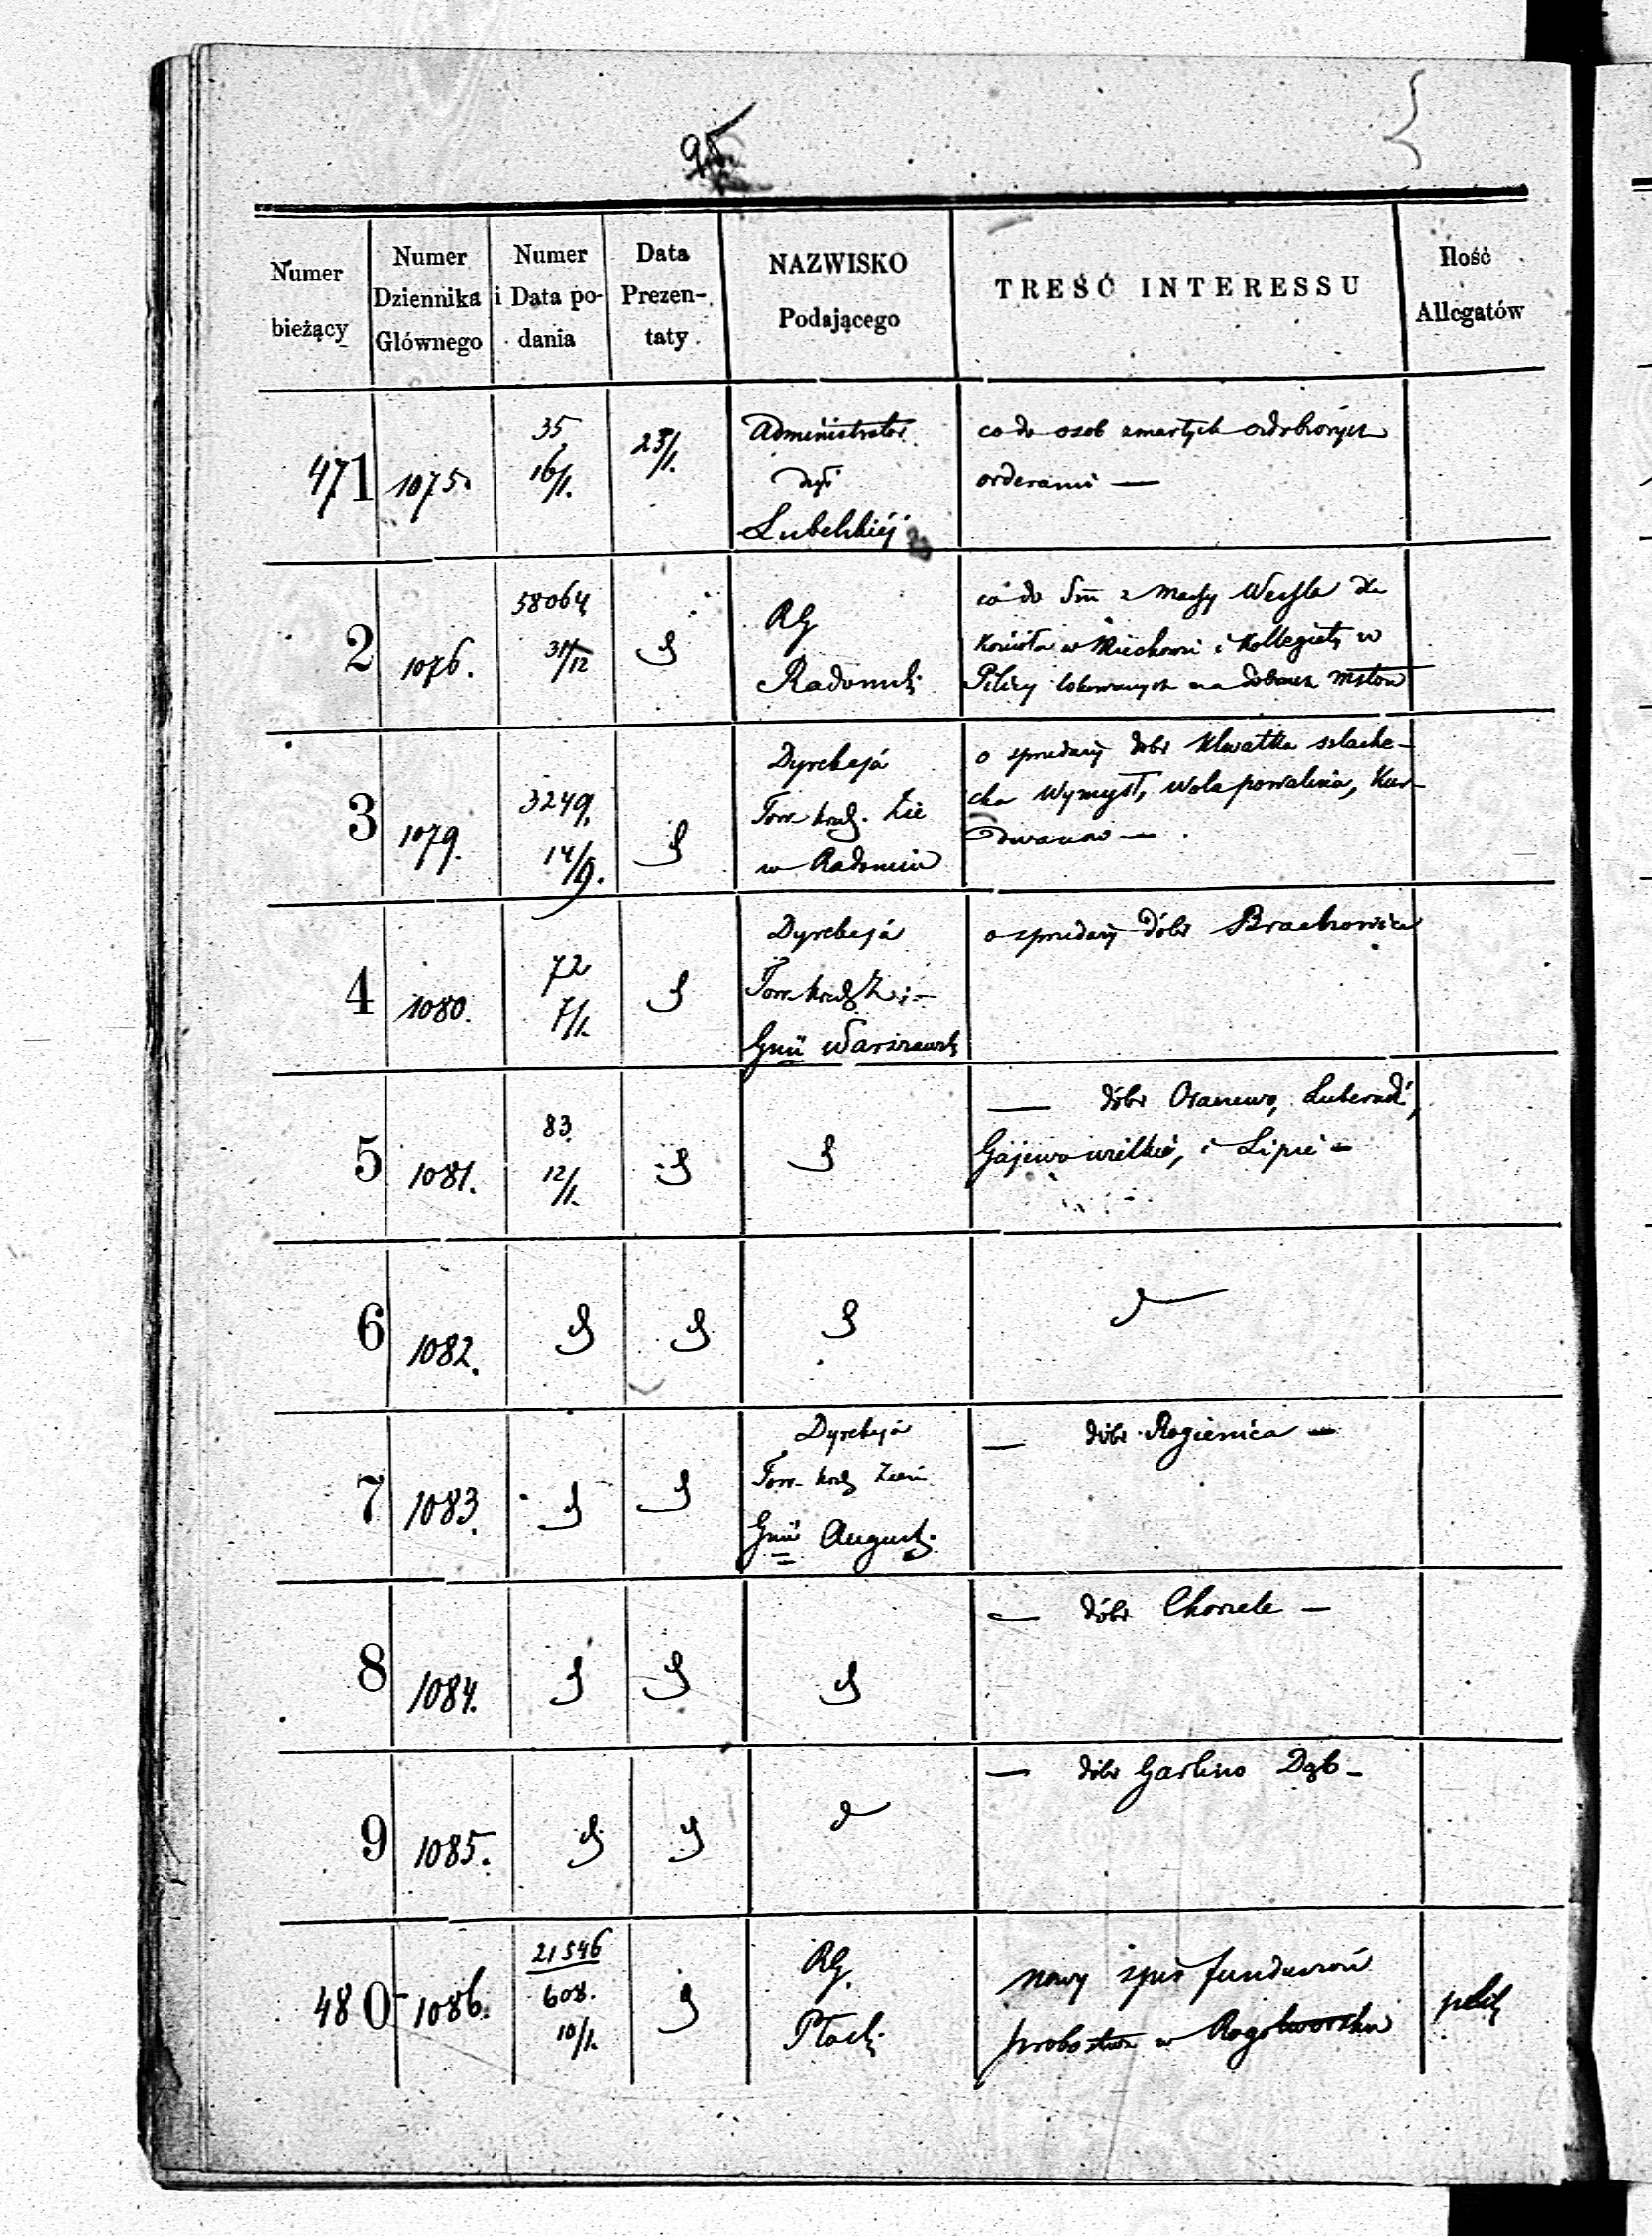 95
Numer bieżący
Numer Dziennika Głównego
Numer i Data podania
Data Prezentaty
NAZWISKO Podającego
TREŚĆ INTERESSU
Ilość Allegatów
471
1075.
35
16/1.
23/1.
Administrator
dyec
Lubelskiéj
co do osob zmarłych ozdobionych
orderami —
2
1076.
58064
31/12
RG
Radomsk.
co do Sm z massy Wessla dla
Kościoła w Miechowie i Kollegiaty w
Pilicy lokowanych na dobrach Mstów
3
1079.
3249.
14/9.
Dyrekcja
Tow. kred. Zie
w Radomiu
o sprzedaży dobr Klwatka szlache-
cka Wymysł, Wola powalina, Kur-
dwanow —
4
1080.
72
7/1.
Dyrekcja
Tow. kred. Zi:
Gnii Warszawsk
o sprzedaży dóbr Brachowice
5
1081.
83.
12/1.
— dóbr Osanewo, Luberadź,
Gajewo wielkie, i Lipie —
6
1082.
7
1083.
Dyrekcja
Tow. kred. Ziem
Gnii August.
— dóbr Rogienica —
8
1084.
— dóbr Chorzele —
9
1085.
— dóbr Garlino Dąb —
480
1086.
21546
608.
10/1.
RG.
Płock.
nowy spis funduszów
probostwa w Rogotworsku